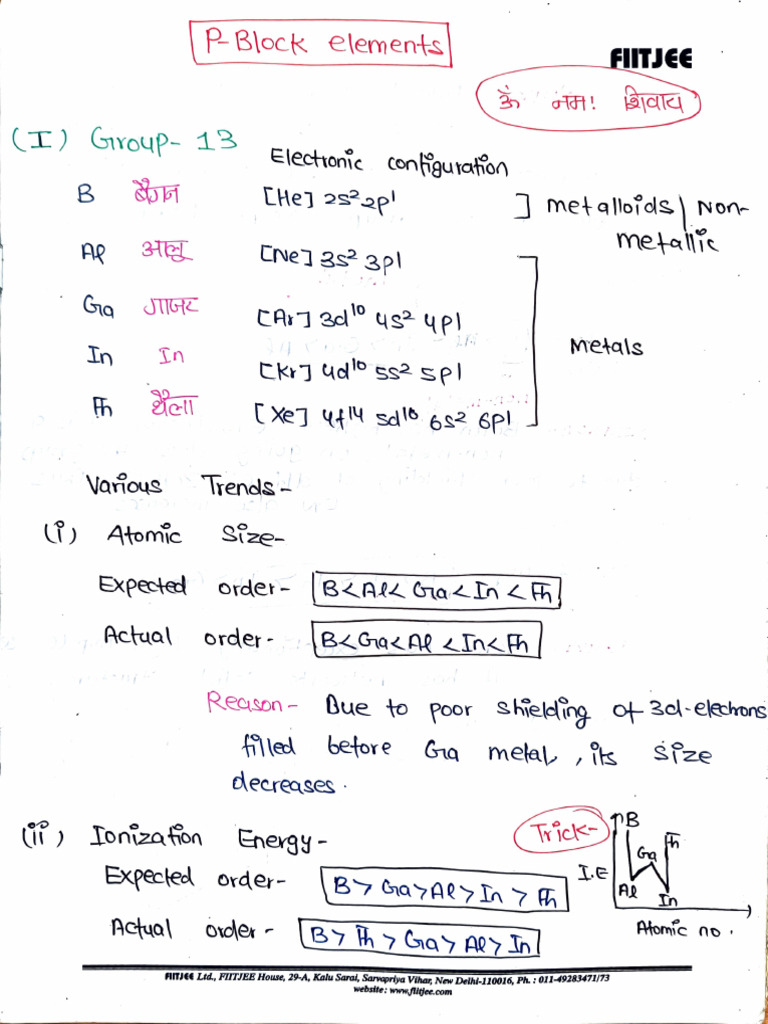 P-Block elements
FIITJEE
ॐ नमः शिवाय
(I) Group-13
Electronic configuration
B बैंगन [He] 2s² 2p¹ ] metalloids | Non-metallic
Al आलु [Ne] 3s² 3p1
Ga गाजर [Ar] 3d¹⁰ 4s² 4p1
Metals
In In [Kr] 4d¹⁰ 5s² 5p1
Th थैला [Xe] 4f14 5d¹⁰ 6s² 6p1
Various Trends-
(i) Atomic Size-
Expected order- B<Al<Ga<In<Th
Actual order- B<Ga<Al<In<Th
Reason- Due to poor shielding of 3d-electrons
filled before Ga metal, its size
decreases.
(ii) Ionization Energy-
Trick-
Expected order- B>Ga>Al>In>Th
Actual order- B>Th>Ga>Al>In
B
Th
Ga
I.E
Al
In
Atomic no.
FIITJEE Ltd., FIITJEE House, 29-A, Kalu Sarai, Sarvapriya Vihar, New Delhi-110016, Ph. : 011-49283471/73
website: www.fiitjee.com